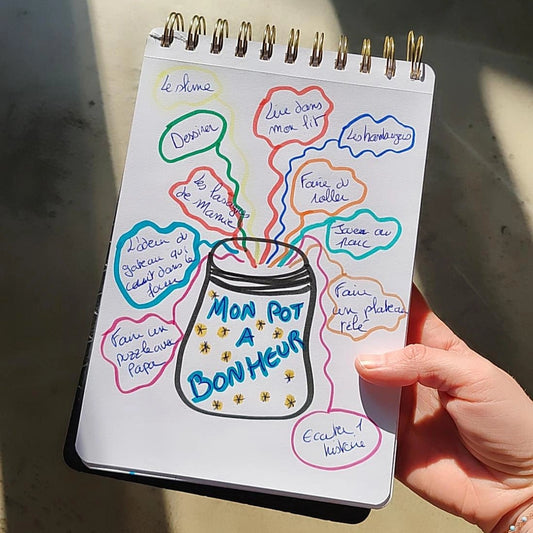 Le slime
Dessiner
Lire dans
mon lit
Les hamburgers
Les lasagnes
de Mamie
Faire du
roller
L'odeur du
gateau qui
cuit dans le
four
Jouer au
parc
Faire un
puzzle avec
Papa
Faire
un plateau
télé
Ecouter 1
histoire
MON POT
A
BONHEUR